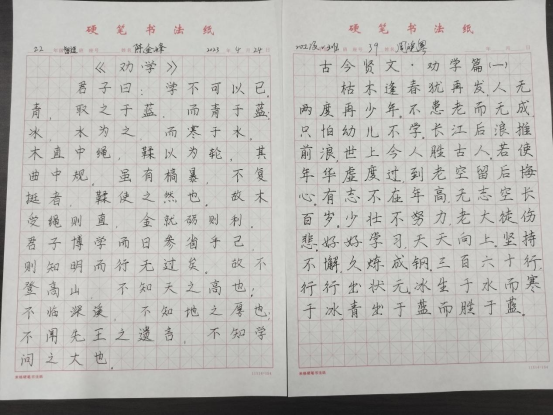 硬笔书法纸
22 智建 陈金峰 2023 年 4 月 24 日
《劝学》
君子曰：学不可以已。
青，取之于蓝，而青于蓝；
冰，水为之，而寒于水。
木直中绳，鞣以为轮，其
曲中规。虽有槁暴，不复
挺者，鞣使之然也。故木
受绳则直，金就砺则利，
君子博学而日参省乎己，
则知明而行无过矣。故不
登高山，不知天之高也；
不临深溪，不知地之厚也；
不闻先王之遗言，不知学
问之大也。
硬笔书法纸
39
古今贤文·劝学篇(一)
枯木逢春犹再发，人无
两度再少年。不患老而无成，
只怕幼儿不学。长江后浪推
前浪，世上今人胜古人。若使
年华虚度过，到老空留后悔
心。有志不在年高，无志空长
百岁。少壮不努力，老大徒伤
悲。好好学习，天天向上。坚持
不懈，久炼成钢。三百六十行，
行行出状元。冰生于水而寒
于水，青出于蓝而胜于蓝。